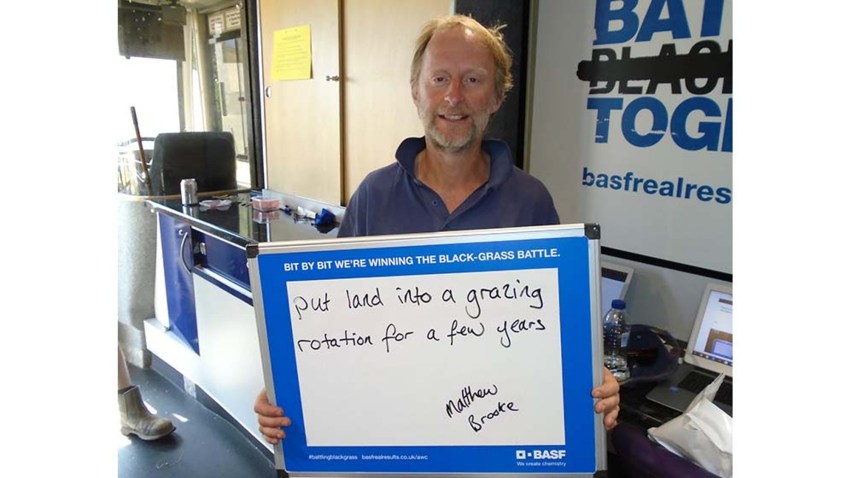 BAT
BLACK
TOGE
basfrealres
BIT BY BIT WE'RE WINNING THE BLACK-GRASS BATTLE.
put land into a grazing
rotation for a few years
Matthew
Brooke
#battlingblackgrass basfrealresults.co.uk/awc
BASF
We create chemistry